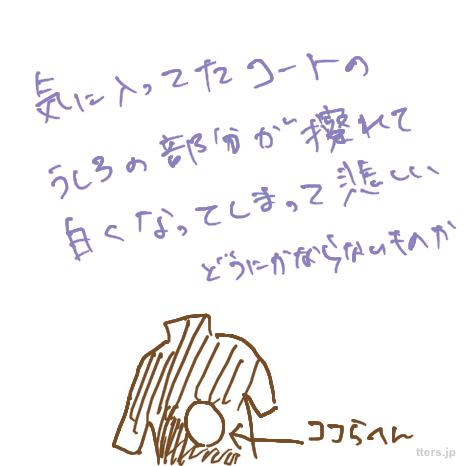 気に入ってたコートの
うしろの部分が擦れて
白くなってしまって悲しい
どうにかならないものか
ココらへん
tters.jp